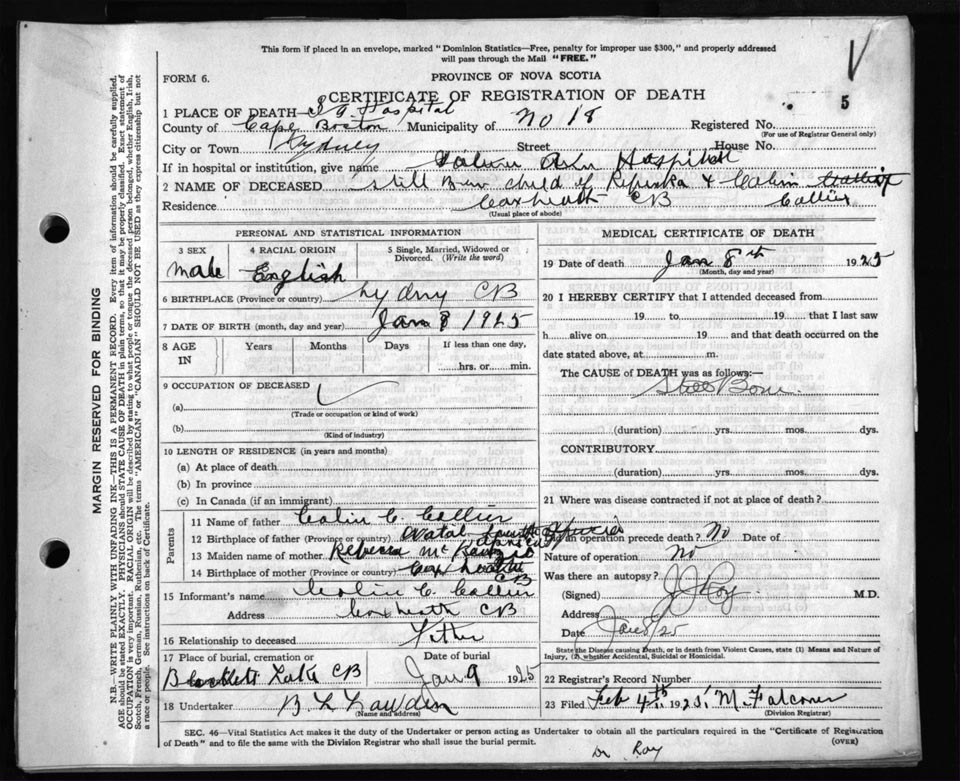 This form if placed in an envelope, marked "Dominion Statistics—Free, penalty for improper use $300," and properly addressed
will pass through the Mail "FREE."
FORM 6.
PROVINCE OF NOVA SCOTIA
CERTIFICATE OF REGISTRATION OF DEATH
5
1 PLACE OF DEATH Hospital
County of Cape Breton Municipality of No 18 Registered No.
(For use of Registrar General only)
City or Town Sydney Street House No.
If in hospital or institution, give name Hospital
2 NAME OF DECEASED Still Born child of & Colin Collier
Residence Coxheath CB
(Usual place of abode)
PERSONAL AND STATISTICAL INFORMATION
3 SEX
male
4 RACIAL ORIGIN
English
5 Single, Married, Widowed or
Divorced. (Write the word)
6 BIRTHPLACE (Province or country) Sydney CB
7 DATE OF BIRTH (month, day and year) Jan 8 1925
8 AGE
IN
Years Months Days If less than one day,
hrs. or min.
9 OCCUPATION OF DECEASED
(a)
(Trade or occupation or kind of work)
(b)
(Kind of industry)
10 LENGTH OF RESIDENCE (in years and months)
(a) At place of death
(b) In province
(c) In Canada (if an immigrant)
Parents
11 Name of father Colin C. Collier
12 Birthplace of father (Province or country) Natal South Africa
13 Maiden name of mother Rebecca
14 Birthplace of mother (Province or country) Coxheath
CB
15 Informant's name Colin C. Collier
Address Coxheath CB
16 Relationship to deceased Father
17 Place of burial, cremation or Date of burial
Lake CB Jan 9 1925
18 Undertaker
(Name and address)
MEDICAL CERTIFICATE OF DEATH
19 Date of death Jan 8th 1925
(Month, day and year)
20 I HEREBY CERTIFY that I attended deceased from
19 to 19 that I last saw
h alive on 19 and that death occurred on the
date stated above, at m.
The CAUSE of DEATH was as follows:—
Still Born
(duration) yrs. mos. dys.
CONTRIBUTORY
(duration) yrs. mos. dys.
21 Where was disease contracted if not at place of death?
Did an operation precede death? No Date of
Nature of operation No
Was there an autopsy?
(Signed) J J Roy M.D.
Address
Date Jan 8/25
State the Disease causing Death, or in death from Violent Causes, state (1) Means and Nature of
Injury, (2) whether Accidental, Suicidal or Homicidal.
22 Registrar's Record Number
23 Filed Feb 4th 1925
(Division Registrar)
SEC. 46—Vital Statistics Act makes it the duty of the Undertaker or person acting as Undertaker to obtain all the particulars required in the "Certificate of Registration
of Death" and to file the same with the Division Registrar who shall issue the burial permit.
(OVER)
Dr Roy
MARGIN RESERVED FOR BINDING
N.B.—WRITE PLAINLY WITH UNFADING INK—THIS IS A PERMANENT RECORD. Every item of information should be carefully supplied.
AGE should be stated EXACTLY. PHYSICIANS should STATE CAUSE OF DEATH in plain terms, so that it may be properly classified. Exact statement of
OCCUPATION is very important. RACIAL ORIGIN will be described by stating to what people or tongue the deceased person belonged, whether English, Irish,
Scotch, French, German, Russian, Ruthenian, etc. The terms "AMERICAN" or "CANADIAN" SHOULD NOT BE USED as they express citizenship but not
a race or people. See instructions on back of Certificate.